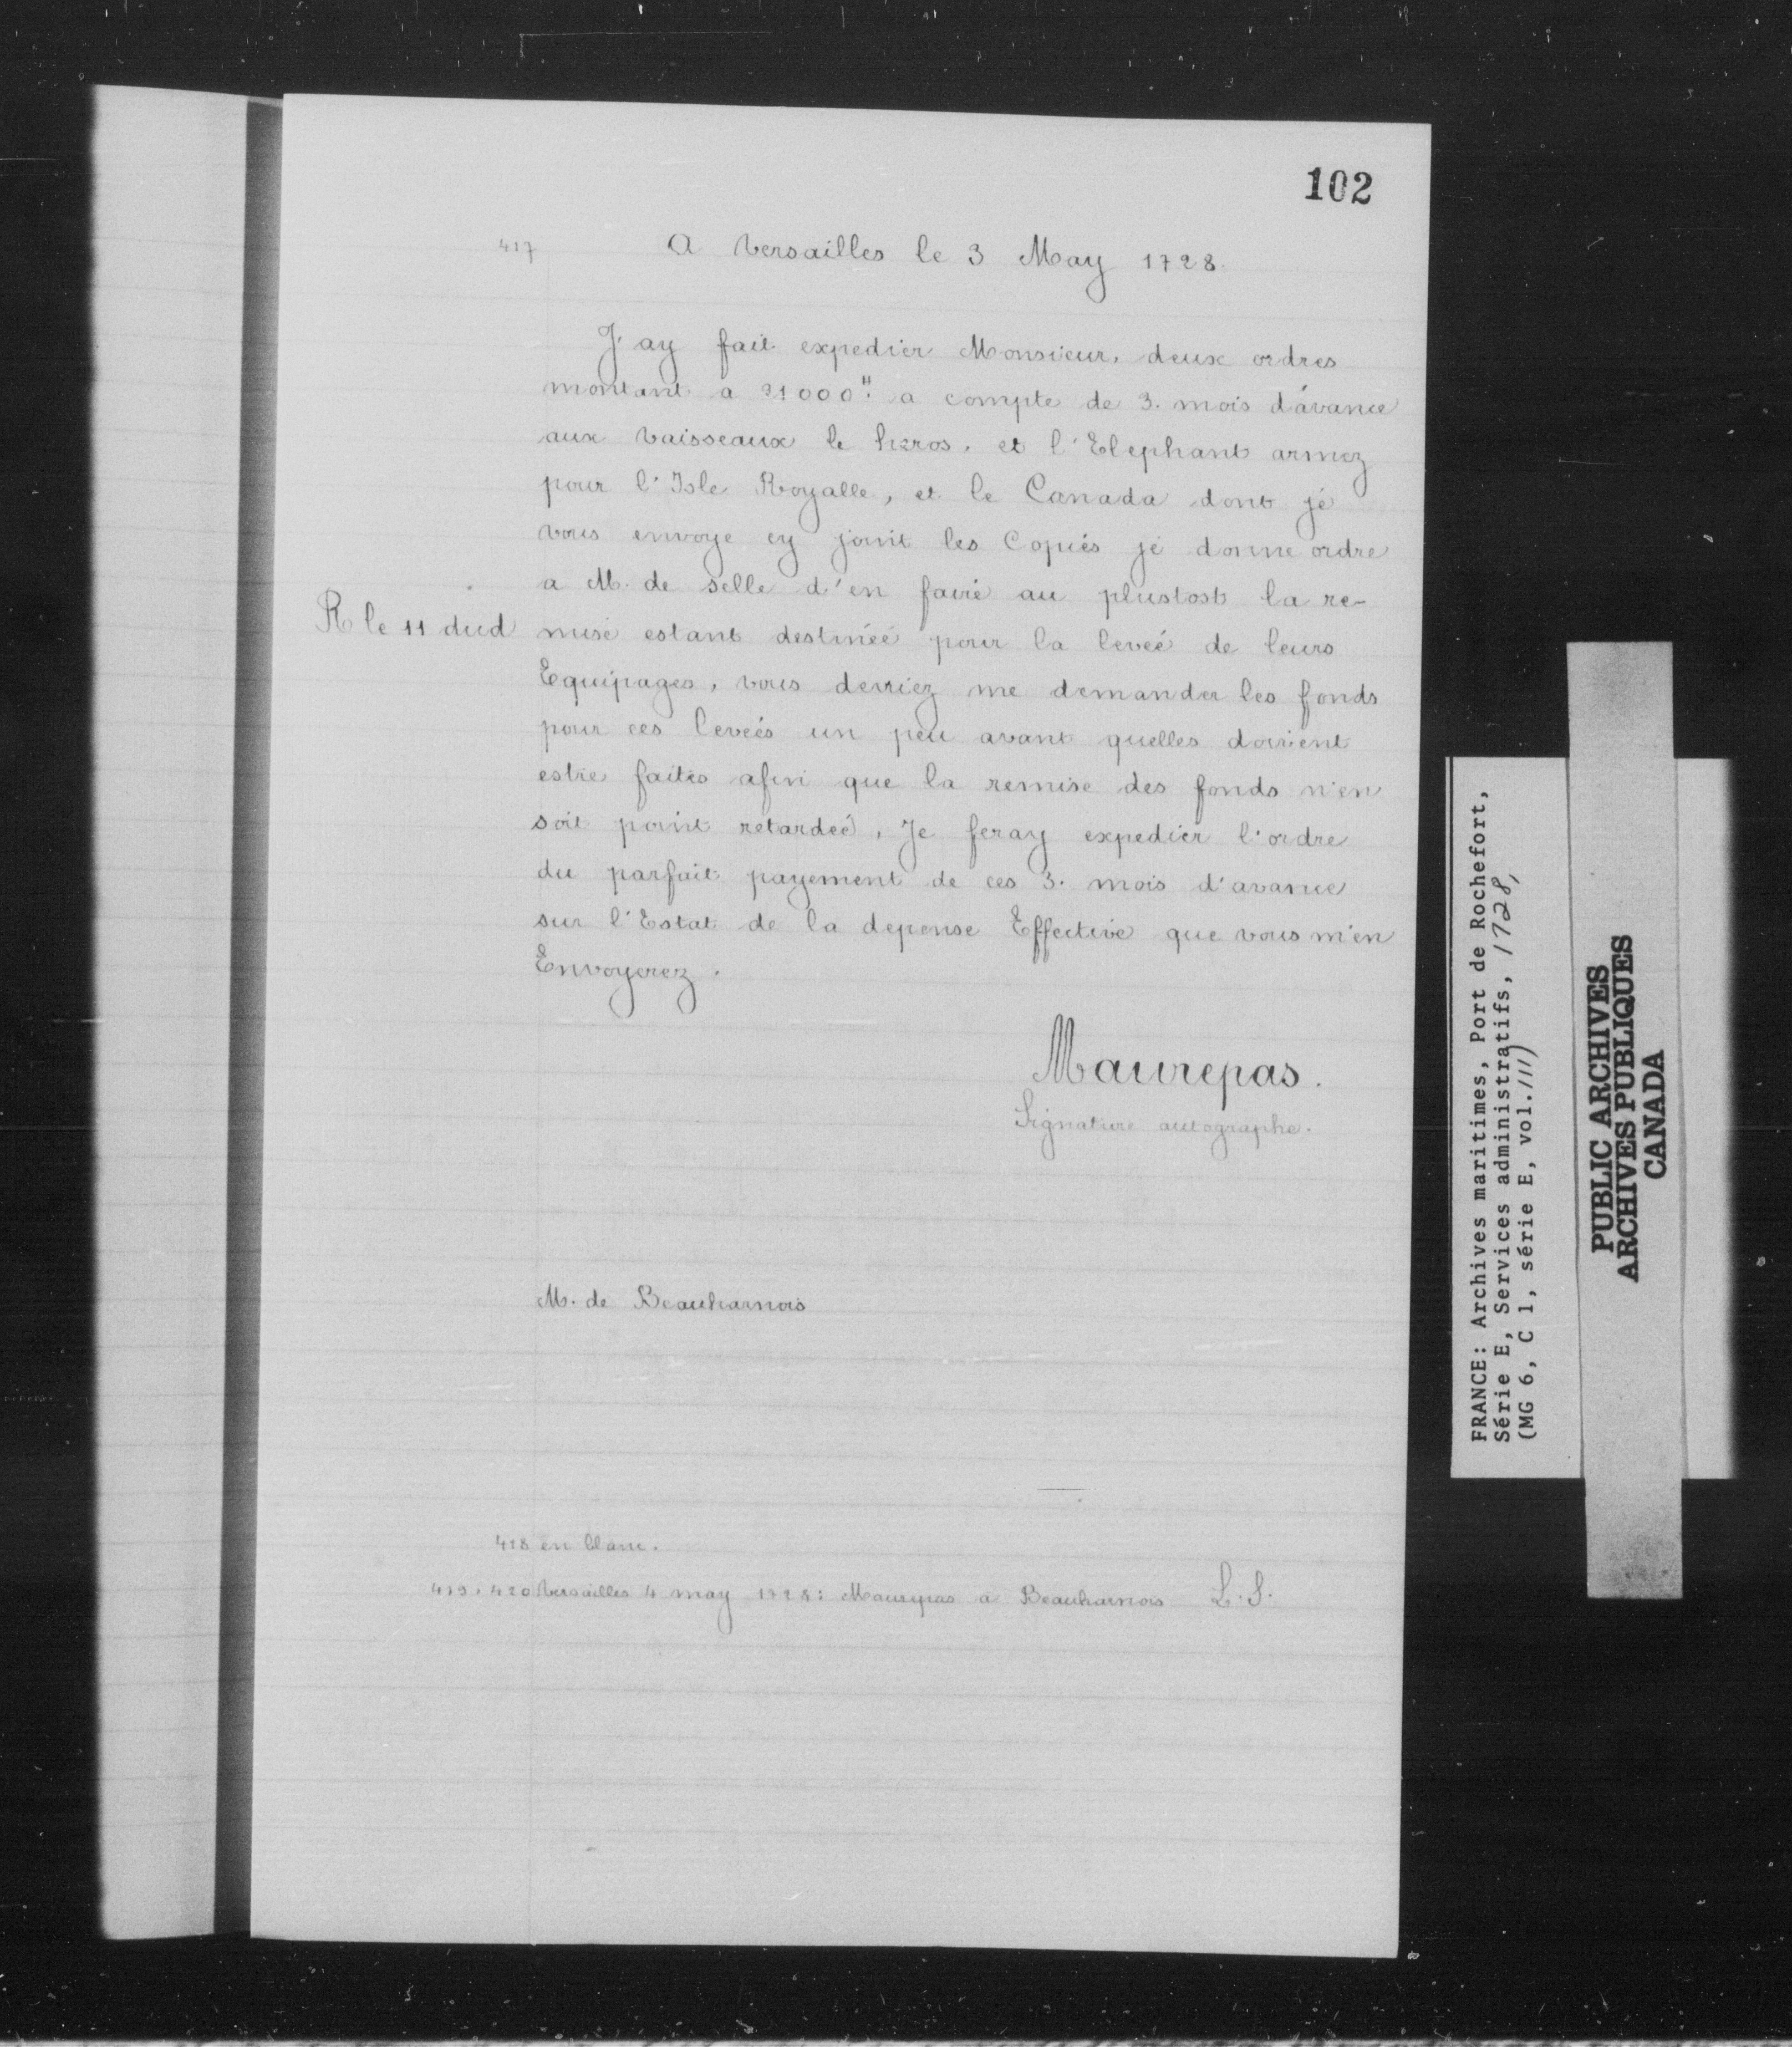 102
417
A Versailles le 3 May 1728.
J'ay fait expedier Monsieur, deux ordres
montant a 21000ᴴ. a compte de 3. mois d'avance
aux Vaisseaux le heros, et l'Elephant armez
pour l'Isle Royalle, et le Canada dont je
vous envoye cy joint les Copies je donne ordre
a M. de Selle d'en faire au plustost la re-
R le 11 dud
mise estant destinée pour la levée de leurs
Equipages, vous devriez me demander les fonds
pour ces levées un peu avant quelles doivent
estre faites afin que la remise des fonds n'en
soit point retardeé, Je feray expedier l'ordre
du parfait payement de ces 3. mois d'avance
sur l'Estat de la depense Effective que vous m'en
Envoyerez.
Maurepas.
Signature autographe.
M. de Beauharnois
418 en blanc.
419. 420 Versailles 4 may 1728: Maurepas a Beauharnois L. S.
FRANCE: Archives maritimes, Port de Rochefort,
Série E, Services administratifs, 1728,
(MG 6, C 1, série E, vol. 111)
PUBLIC ARCHIVES
ARCHIVES PUBLIQUES
CANADA